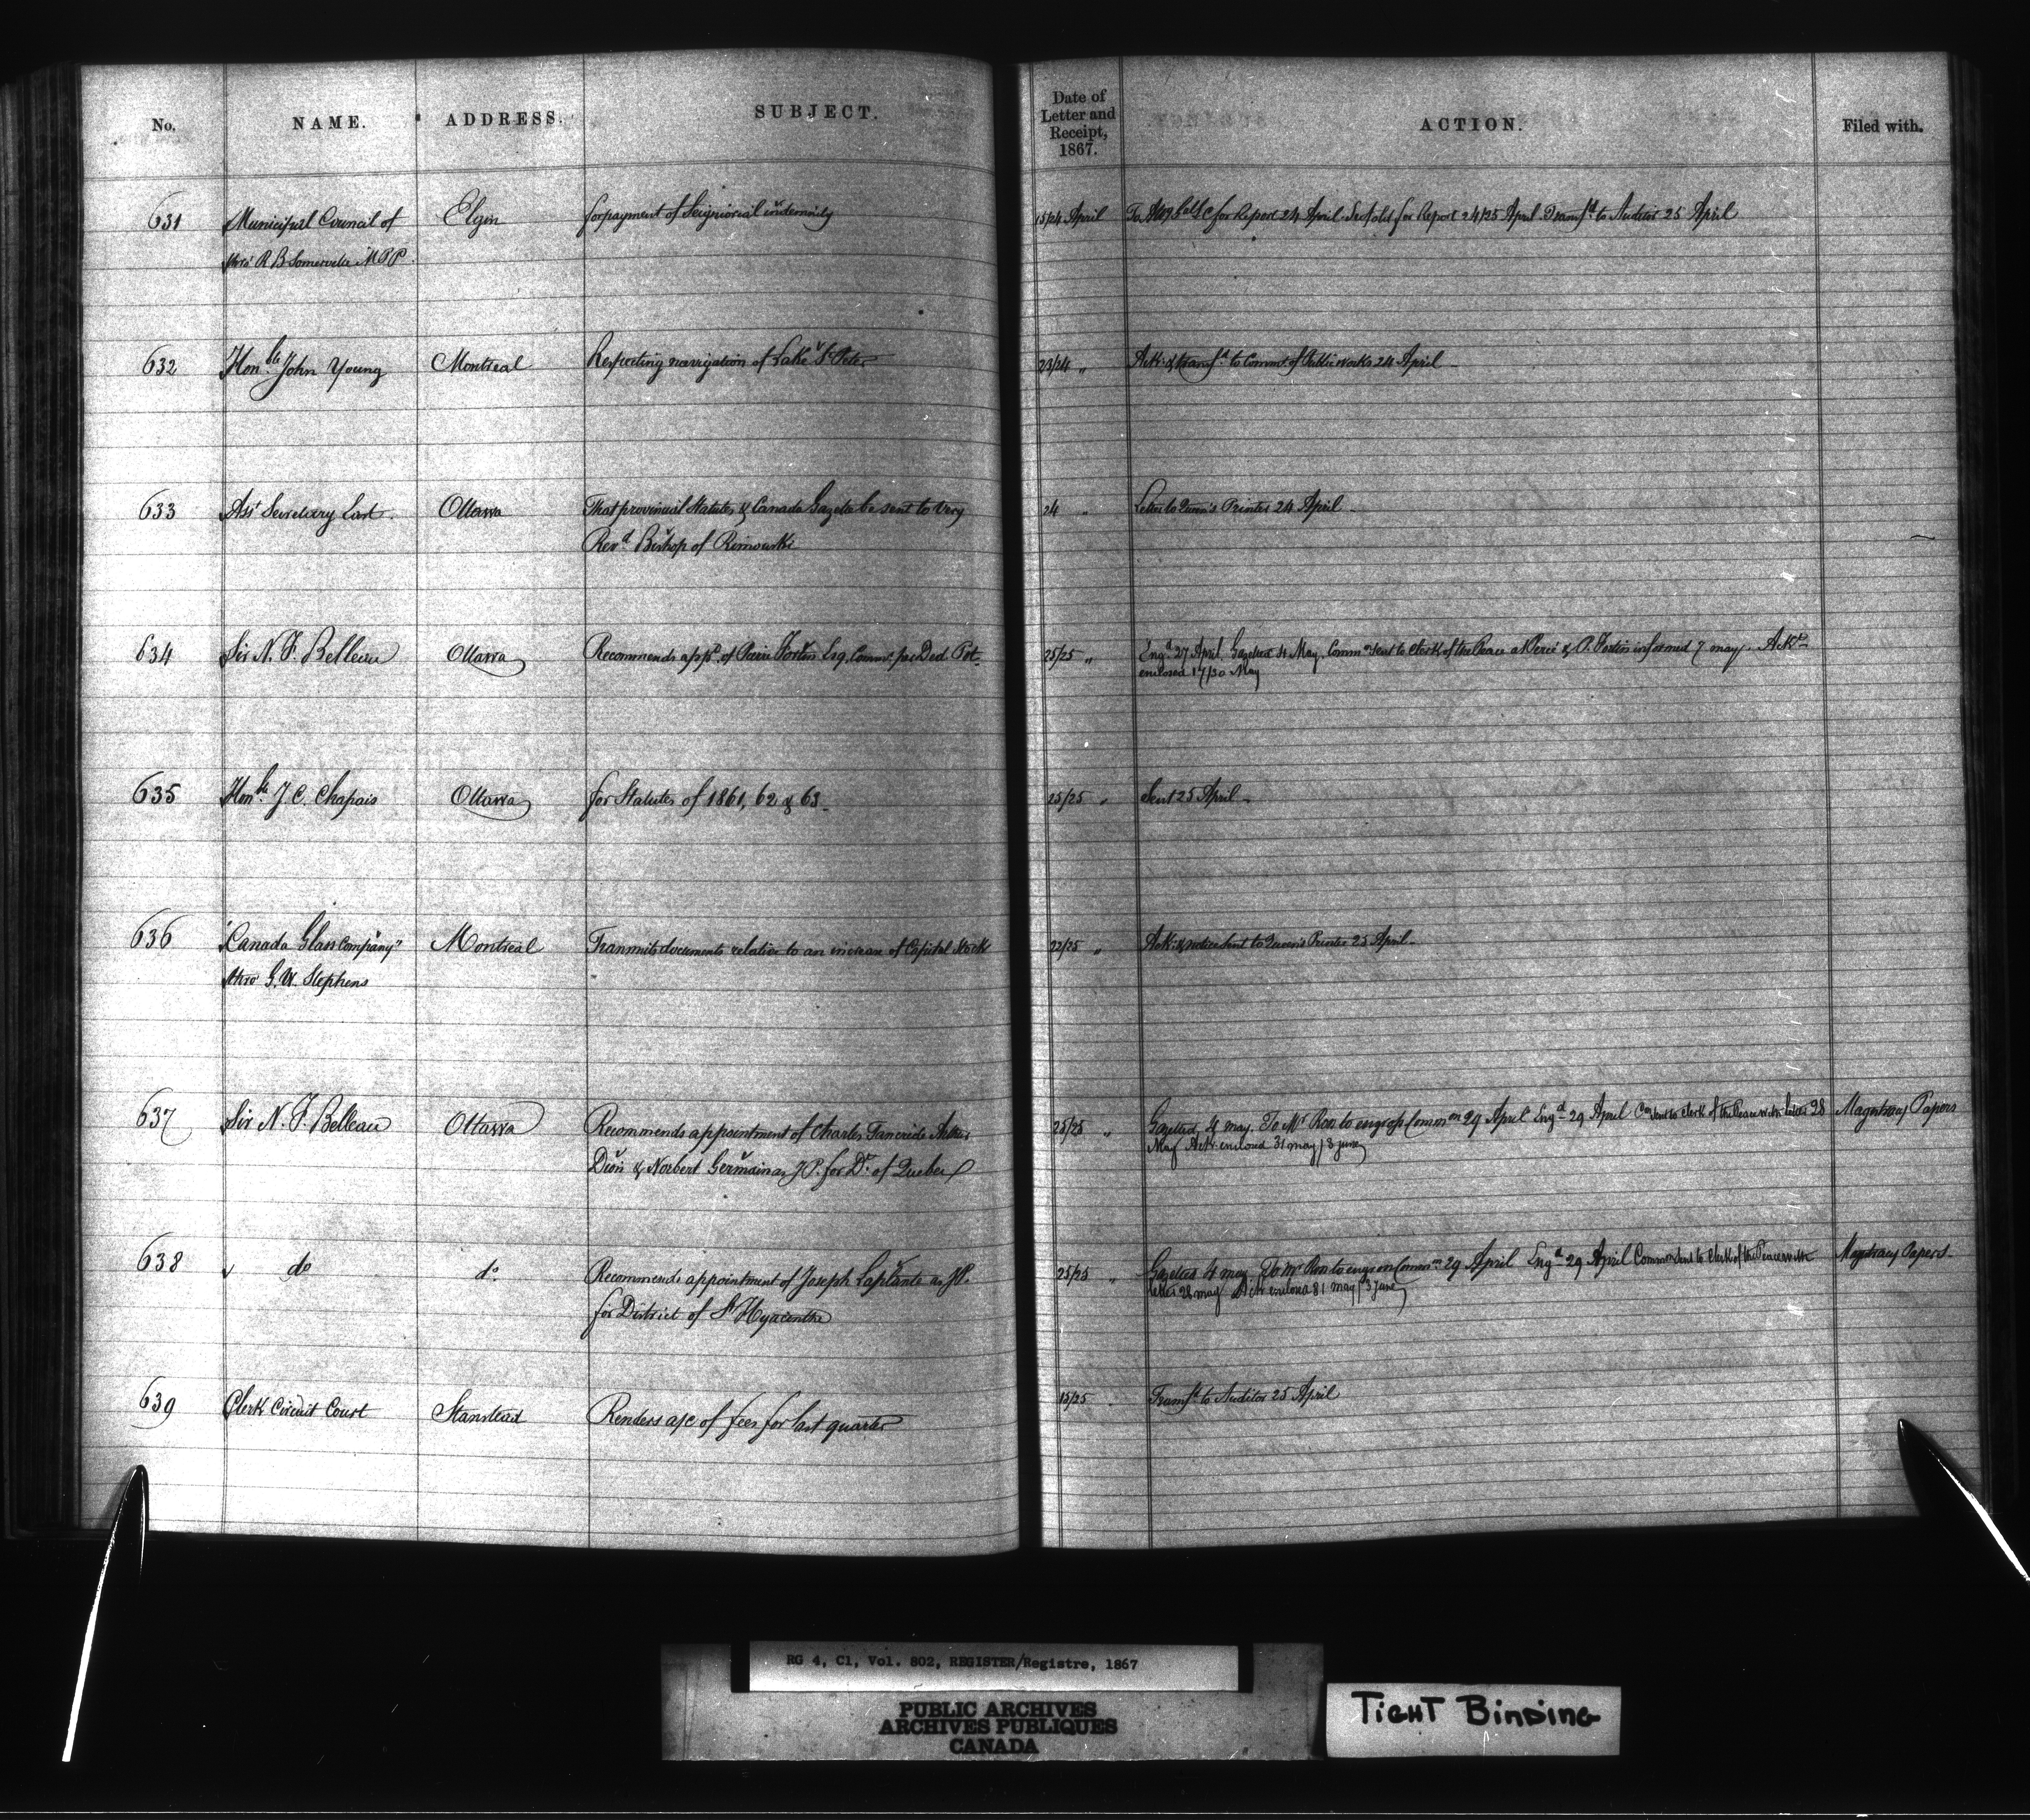 No. NAME. ADDRESS. SUBJECT. Date of Letter and Receipt, 1867. ACTION. Filed with.
631 Municipal Council of Elgin for payment of Seigniorial indemnity 15/24 April for Report 24 April for Report 24/25 April. Transfd to Auditor 25 April
thro' R B Somerville M P P
632 Honble John Young Montreal Respecting navigation of Lake St Peter 23/24 " Ack: & transfd to Commr of Public works 24 April
633 Asst Secretary East Ottawa That provincial Statutes & Canada Gazette be sent to Very 24 " Letter to Queen's Printer 24 April
Revd Bishop of Rimouski
634 Sir N. F. Belleau Ottawa Recommends appt of Pierre Fortin Esq. Commr per Ded. Pot. 25/25 " Engd 27 April Gazetted 4 May. Commn sent to Clerk of the Peace at Percé & P. Fortin informed 7 may. Ackt
enclosed 17/30 May
635 Honble J. C. Chapais Ottawa for Statutes of 1861, 62 & 63 25/25 " Sent 25 April
636 "Canada Glass Company" Montreal Transmits documents relative to an increase of Capital Stock 22/25 " Ack: & notice sent to Queen's Printer 25 April
thro' G. W. Stephens
637 Sir N. F. Belleau Ottawa Recommends appointment of Charles Tancride 25/25 " Gazetted 4 may. To Mr Ross to engross Commn 29 April Engd 29 April Con sent to Clerk of the Peace with letter 28 Magistracy Papers
Dion & Norbert Germain as J P. for Dt of Quebec May Ack enclosed 31 may / 3 june
638 do do Recommends appointment of Joseph Laplante as J.P. 25/25 " Gazetted 4 may To Mr Ross to engross Commn 29 April Engd 29 April Commn sent to Clerk of the Peace with Magistracy Papers
for District of St Hyacinthe letter 28 may Ack enclosed 31 may / 3 june
639 Clerk Circuit Court Stanstead Renders a/c of fees for last quarter 15/25 Transfd to Auditor 25 April
RG 4, C1, Vol. 802, REGISTER/Registre, 1867
PUBLIC ARCHIVES
ARCHIVES PUBLIQUES
CANADA
TIGHT BINDING